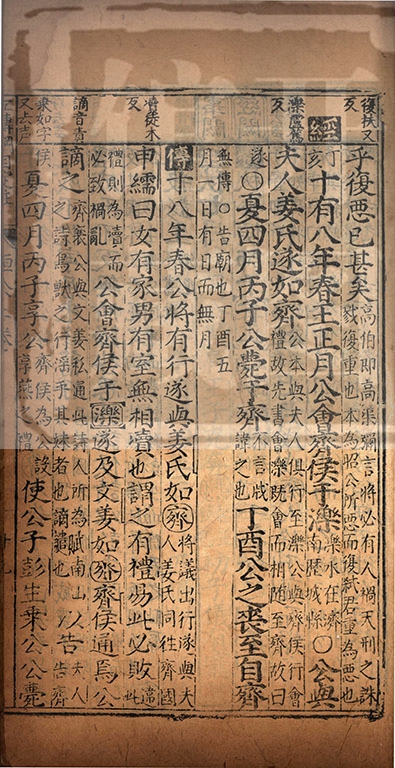 復扶又
反
乎復惡已甚矣高伯即高渠彌言將必有人禍天刑之誅
戮復重也本為昭公所惡而復弒君重為惡也
經丁亥十有八年春王正月公會齊侯于濼濼水在濟南歷城縣○公與
濼盧篤
反
夫人姜氏遂如齊公本與夫人俱行至濼公與齊侯行會
禮故先書會濼既會而相隨至齊故曰
遂○夏四月丙子公薨于齊不言戕諱之也丁酉公之喪至自齊
無傳○告廟也丁酉五
月一日有日而無月
傳十八年春公將有行遂與姜氏如齊將議出行遂與夫人姜氏同往齊國
瀆徒木
反
申繻曰女有家男有室無相瀆也謂之有禮易此必敗違
禮則為瀆而必致禍亂公會齊侯于濼遂及文姜如齊齊侯通焉公
謫音責
謫之齊襄公與文姜私通此詩人所為賦南山
之詩鳥獸之行淫乎其妹者也謫譴也以告夫人告齊
乘如字
又去声
侯夏四月丙子享公齊侯為公設享燕之禮使公子彭生乘公公薨